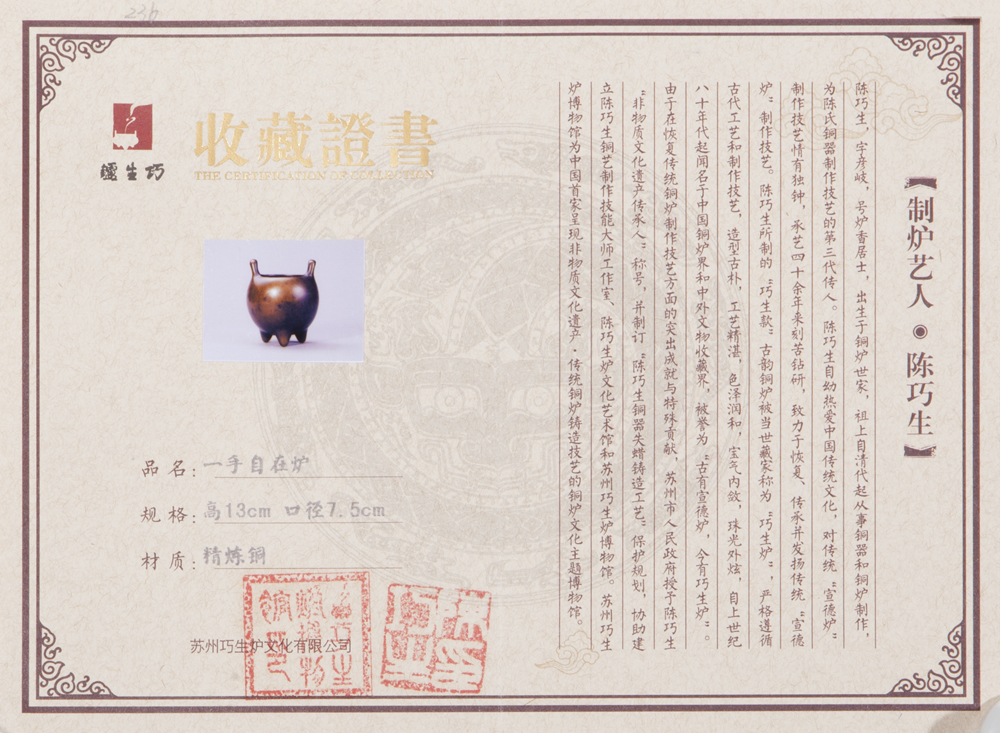 236
巧生爐
收藏證書
THE CERTIFICATION OF COLLECTION
品名：一手自在炉
规格：高13cm 口径7.5cm
材质：精炼铜
苏州巧生炉文化有限公司
【制炉艺人◉陈巧生】
陈巧生，字彦岐，号炉香居士，出生于铜炉世家，祖上自清代起从事铜器和铜炉制作，
为陈氏铜器制作技艺的第三代传人。陈巧生自幼热爱中国传统文化，对传统“宣德炉”
制作技艺情有独钟，承艺四十余年来刻苦钻研，致力于恢复、传承并发扬传统“宣德
炉”制作技艺。陈巧生所制的“巧生款”古韵铜炉被当世藏家称为“巧生炉”，严格遵循
古代工艺和制作技艺，造型古朴，工艺精湛，色泽润和，宝气内敛，珠光外炫，自上世纪
八十年代起闻名于中国铜炉界和中外文物收藏界，被誉为“古有宣德炉，今有巧生炉”。
由于在恢复传统铜炉制作技艺方面的突出成就与特殊贡献，苏州市人民政府授予陈巧生
“非物质文化遗产传承人”称号，并制订“陈巧生铜器失蜡铸造工艺”保护规划，协助建
立陈巧生铜艺制作技能大师工作室、陈巧生炉文化艺术馆和苏州巧生炉博物馆。苏州巧生
炉博物馆为中国首家呈现非物质文化遗产·传统铜炉铸造技艺的铜炉文化主题博物馆。